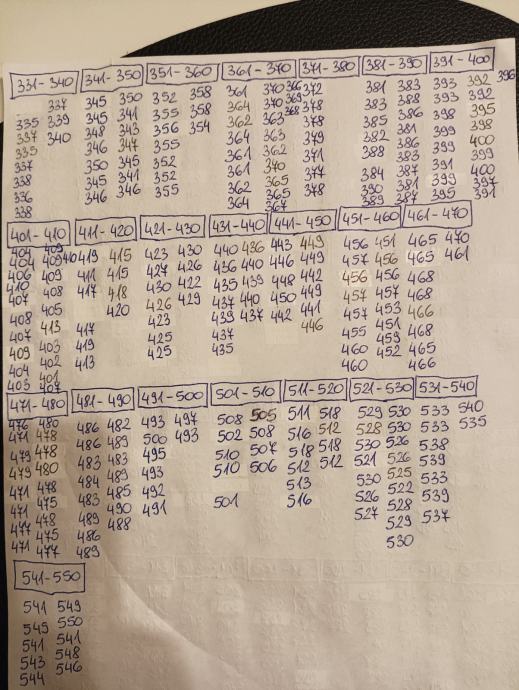 331-340 341-350 351-360 361-370 371-380 381-390 391-400
337 345 350 352 358 361 370 366 372 381 383 393 392 396
335 339 345 341 355 358 364 370 369 378 383 388 393 392
337 340 348 343 356 354 362 363 368 378 385 386 398 395
335 346 347 355 364 363 379 382 381 399 398
337 350 345 352 361 362 371 388 386 399 400
338 345 341 352 361 370 377 383 387 399
336 346 346 355 362 365 378 384 387 391 400
338 364 365 367 390 381 399 397
389 387 395 391
401-410 411-420 421-430 431-440 441-450 451-460 461-470
404 409 419 415 423 430 440 436 443 449 456 451 465 470
404 409 410 411 415 427 426 436 440 446 449 457 456 465 461
406 409 417 418 430 422 435 439 448 442 456 456 468
410 408 420 426 429 437 440 450 449 457 457 468
407 405 417 423 439 437 442 441 457 453 466
408 413 419 425 437 446 455 451 468
407 403 413 425 435 460 459 465
409 402 460 452 466
404 401
403 407
471-480 481-490 491-500 501-510 511-520 521-530 531-540
476 480 486 482 493 497 508 505 511 518 529 530 533 540
471 478 486 489 500 493 502 508 516 512 528 530 533 535
479 478 483 483 495 510 507 518 518 530 526 538
479 480 484 489 493 510 506 512 512 521 526 539
471 478 483 485 492 501 513 530 525 533
471 475 489 490 491 516 526 522 539
477 478 486 488 527 528 537
471 477 489 529
530
541-550
541 549
545 550
541 541
543 548
544 546